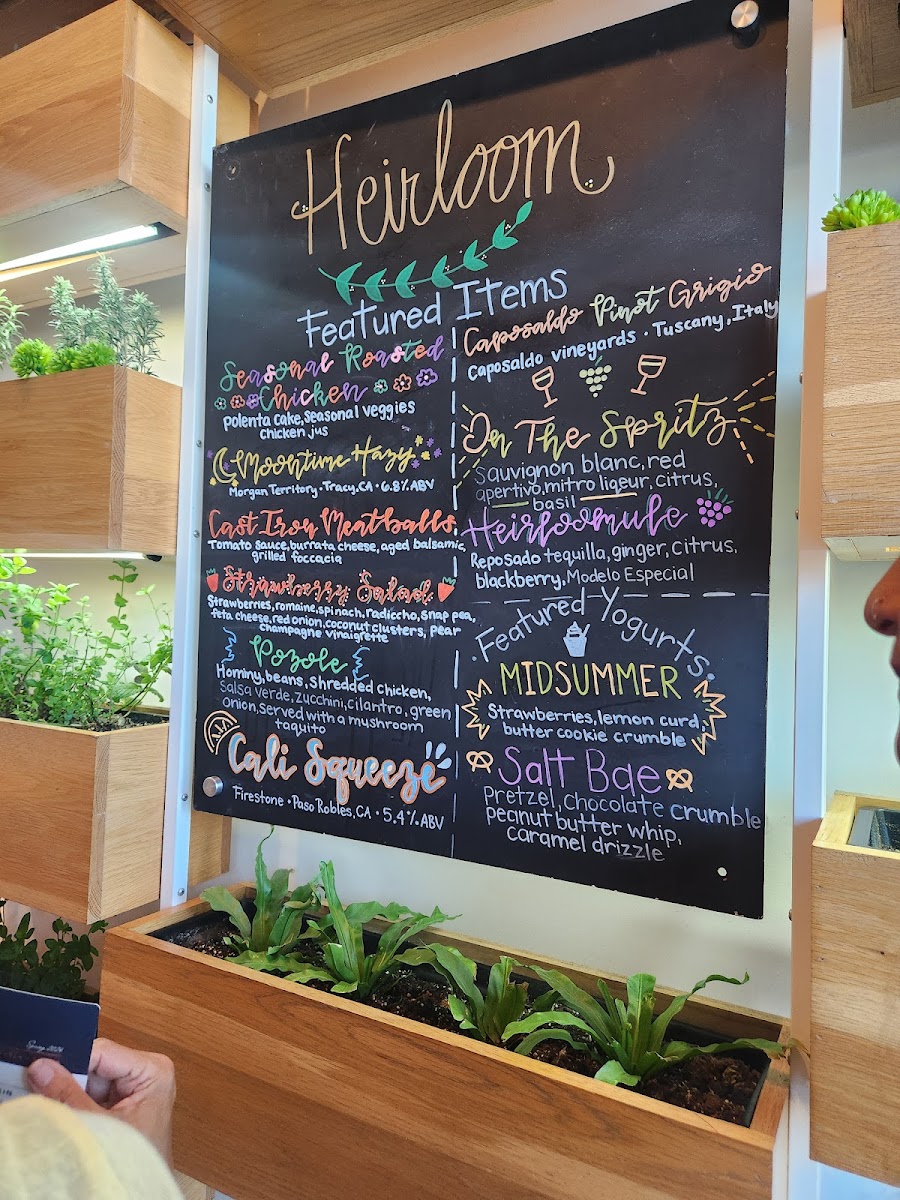 Heirloom
Featured Items
Seasonal Roasted
Chicken
Polenta cake, Seasonal Veggies
Chicken jus
Moontime Hazy
Morgan Territory • Tracy, CA • 6.8% ABV
Cast Iron Meatballs
Tomato sauce, burrata cheese, aged balsamic,
grilled foccacia
Strawberry Salad
Strawberries, romaine, spinach, radiccho, snap pea,
feta cheese, red onion, coconut clusters, pear
champagne vinaigrette
Pozole
Hominy, beans, shredded chicken,
Salsa verde, zucchini, cilantro, green
onion, served with a mushroom
taquito
Cali Squeeze
Firestone • Paso Robles, CA • 5.4% ABV
Caposaldo Pinot Grigio
Caposaldo vineyards • Tuscany, Italy
On The Spritz
Sauvignon blanc, red
apertivo, mitro liqeur, citrus,
basil
Heirloomule
Reposado tequilla, ginger, citrus,
blackberry, Modelo Especial
• Featured Yogurts •
MIDSUMMER
Strawberries, lemon curd,
butter cookie crumble
Salt Bae
Pretzel, chocolate crumble
peanut butter whip,
caramel drizzle
Spring 2024